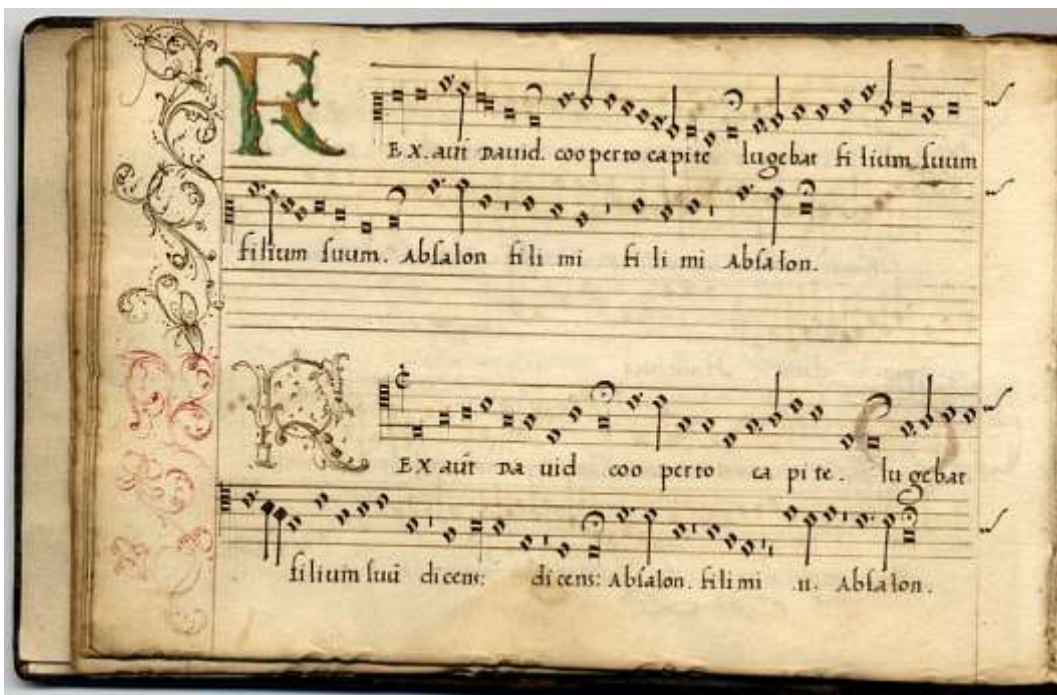 REX. aūt Dauid. cooperto capite lugebat filium suum
filium suum. Absalon fili mi fi li mi Absalon.
REX aūt Da uid coo perto ca pi te. lugebat
filium suū dicens: dicens: Absalon. fili mi .ıı. Absalon.